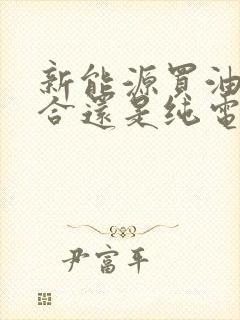 新能源買油混
合還是純電
尹富平